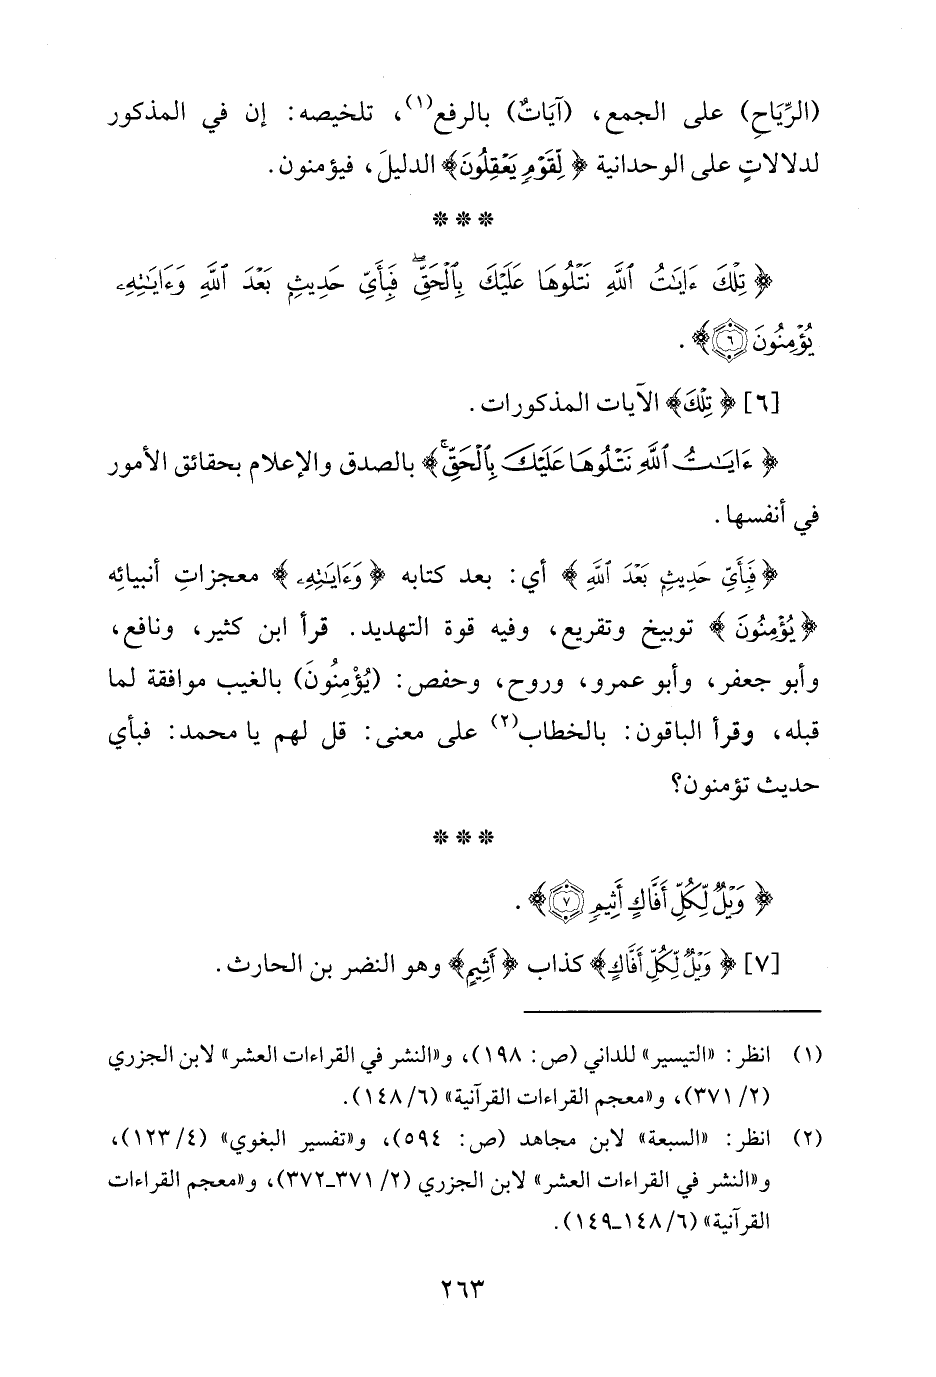 (الرِّيَاحِ) على الجمع، (آيَاتٌ) بالرفع(١)، تلخيصه: إن في المذكور
لدلالاتٍ على الوحدانية ﴿لِّقَوْمٍ يَعْقِلُونَ﴾ الدليلَ، فيؤمنون.
* * *
﴿تِلْكَ ءَايَٰتُ ٱللَّهِ نَتْلُوهَا عَلَيْكَ بِٱلْحَقِّ ۖ فَبِأَيِّ حَدِيثٍۭ بَعْدَ ٱللَّهِ وَءَايَٰتِهِۦ
يُؤْمِنُونَ ٦﴾.
[٦] ﴿تِلْكَ﴾ الآيات المذكورات.
﴿ءَايَٰتُ ٱللَّهِ نَتْلُوهَا عَلَيْكَ بِٱلْحَقِّ ۚ﴾ بالصدق والإعلام بحقائق الأمور
في أنفسها.
﴿فَبِأَيِّ حَدِيثٍۭ بَعْدَ ٱللَّهِ﴾ أي: بعد كتابه ﴿وَءَايَٰتِهِۦ﴾ معجزاتِ أنبيائِه
﴿يُؤْمِنُونَ﴾ توبيخ وتقريع، وفيه قوة التهديد. قرأ ابن كثير، ونافع،
وأبو جعفر، وأبو عمرو، وروح، وحفص: (يُؤْمِنُونَ) بالغيب موافقة لما
قبله، وقرأ الباقون: بالخطاب(٢) على معنى: قل لهم يا محمد: فبأي
حديث تؤمنون؟
* * *
﴿وَيْلٌ لِّكُلِّ أَفَّاكٍ أَثِيمٍ ٧﴾.
[٧] ﴿وَيْلٌ لِّكُلِّ أَفَّاكٍ﴾ كذاب ﴿أَثِيمٍ﴾ وهو النضر بن الحارث.
(١) انظر: «التيسير» للداني (ص: ١٩٨)، و«النشر في القراءات العشر» لابن الجزري
(٢/ ٣٧١)، و«معجم القراءات القرآنية» (٦/ ١٤٨).
(٢) انظر: «السبعة» لابن مجاهد (ص: ٥٩٤)، و«تفسير البغوي» (٤/ ١٢٣)،
و«النشر في القراءات العشر» لابن الجزري (٢/ ٣٧١ـ٣٧٢)، و«معجم القراءات
القرآنية» (٦/ ١٤٨ـ١٤٩).
٢٦٣